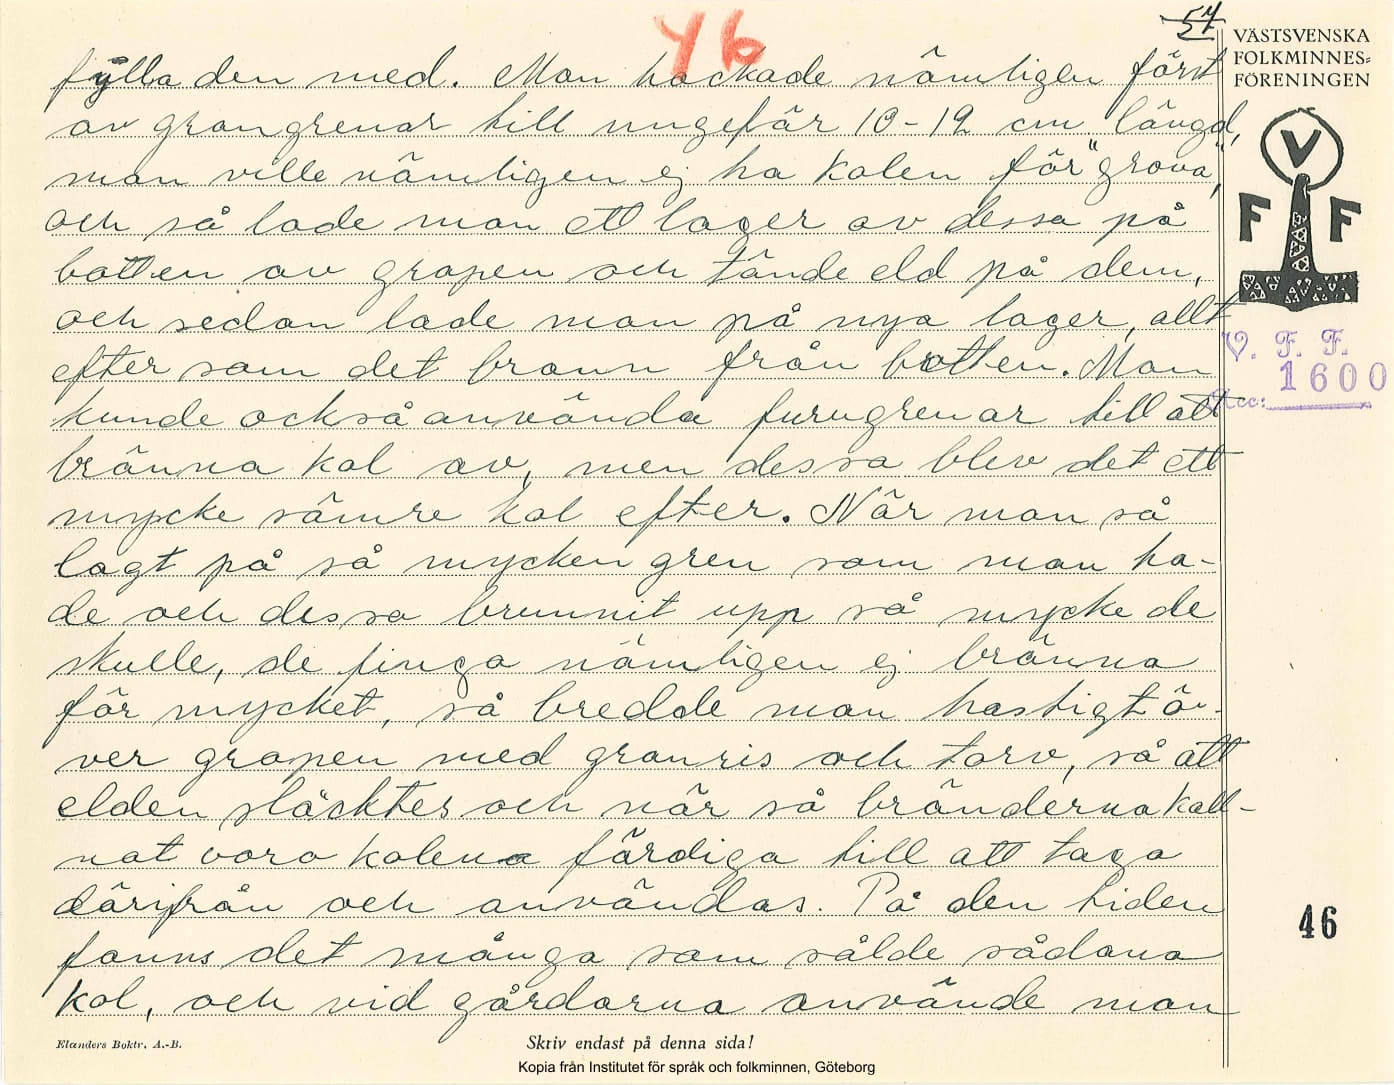 46
57
VÄSTSVENSKA
FOLKMINNES-
FÖRENINGEN
fylla den med. Man hackade nämligen först
av grangrenar till ungefär 10-12 cm längd,
man ville nämligen ej ha kolen för "grova",
och så lade man ett lager av dessa på
botten av gropen och tände eld på dem,
och sedan lade man på nya lager, allt
efter som det brann från botten. Man
kunde också använda furugrenar till att
bränna kol av, men dessa blev det ett
mycke sämre kol efter. När man så
lagt på så mycken gren som man ha-
de och dessa brunnit upp så mycke de
skulle, de finga nämligen ej bränna
för mycket, så bredde man hastigt ö-
ver gropen med granris och torv, så att
elden släcktes och när så bränderna kall-
nat voro kolena färdiga till att taga
därifrån och användas. På den tiden
fanns det många som sålde sådana
kol, och vid gårdarna använde man
V
F F
V. F. F.
1600
Acc:
46
Elanders Boktr. A.-B.
Skriv endast på denna sida!
Kopia från Institutet för språk och folkminnen, Göteborg